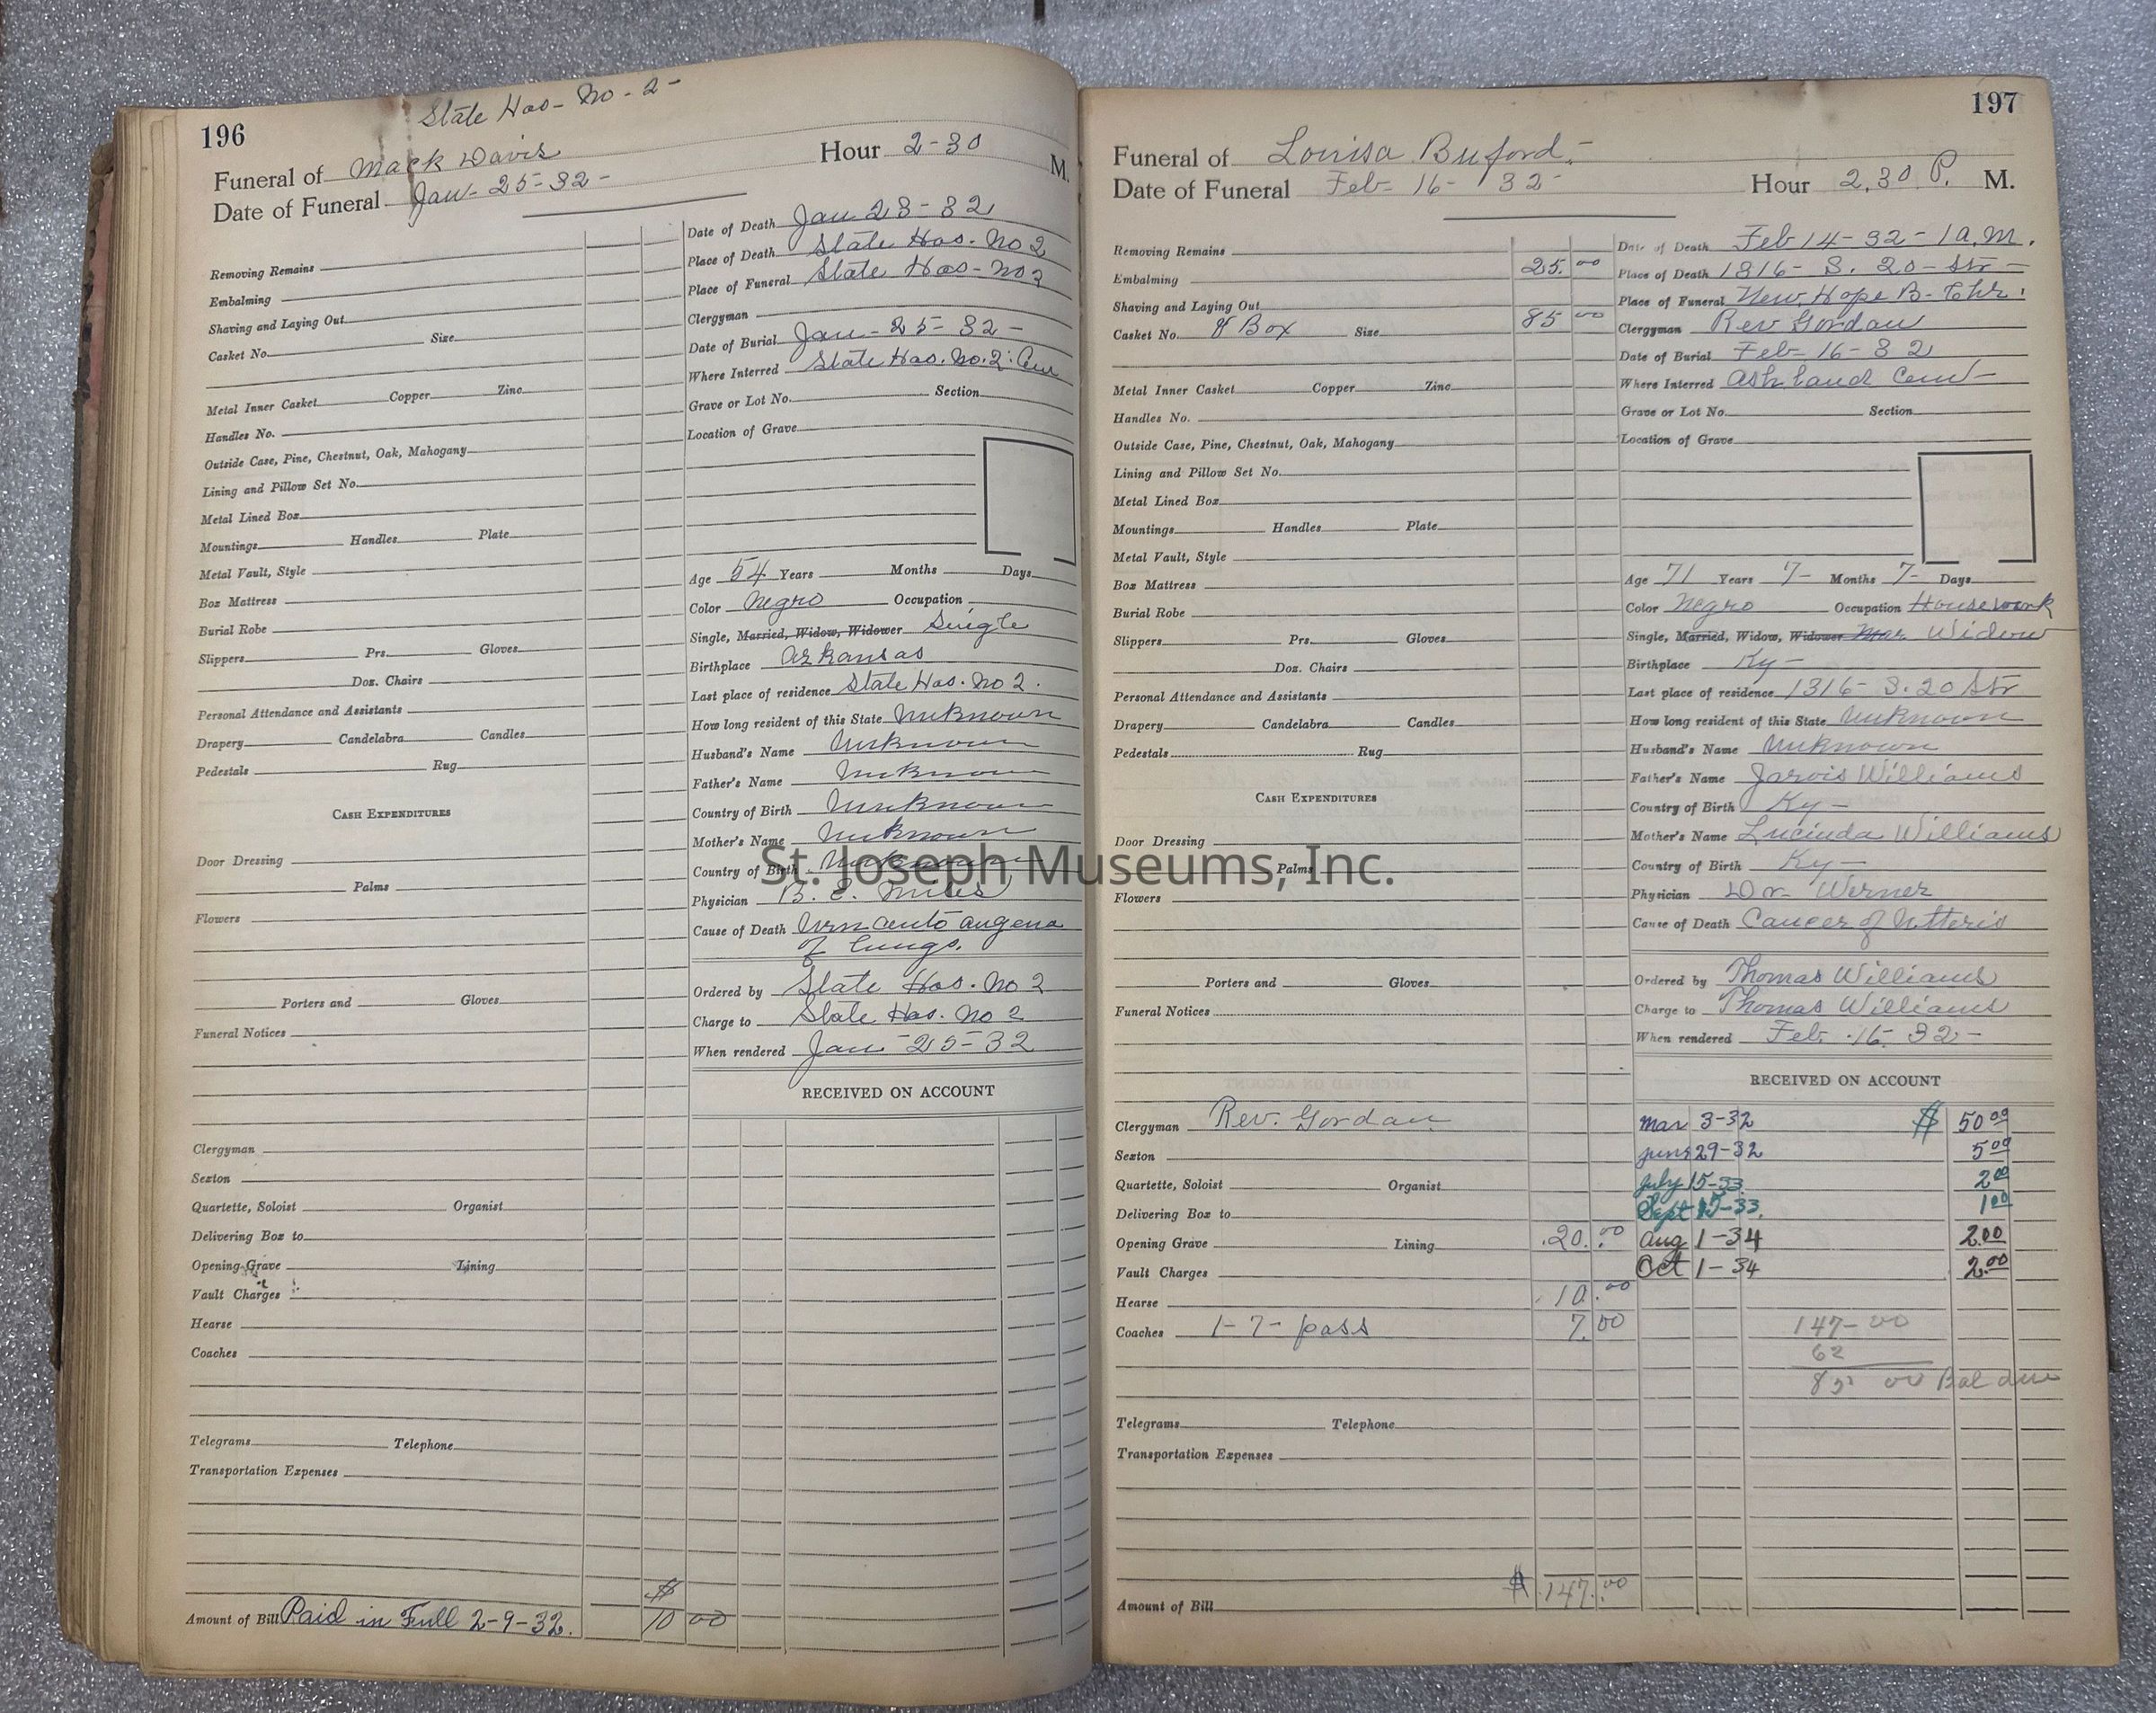 State Hos- No- 2-
196
Funeral of Mack Davis Hour 2-30 M.
Date of Funeral Jan- 25-32-
Removing Remains
Embalming
Shaving and Laying Out
Casket No. Size
Metal Inner Casket Copper Zinc
Handles No.
Outside Case, Pine, Chestnut, Oak, Mahogany
Lining and Pillow Set No.
Metal Lined Box
Mountings Handles Plate
Metal Vault, Style
Box Mattress
Burial Robe
Slippers Prs. Gloves
Doz. Chairs
Personal Attendance and Assistants
Drapery Candelabra Candles
Pedestals Rug
CASH EXPENDITURES
Door Dressing
Palms
Flowers
Porters and Gloves
Funeral Notices
Clergyman
Sexton
Quartette, Soloist Organist
Delivering Box to
Opening Grave Lining
Vault Charges
Hearse
Coaches
Telegrams Telephone
Transportation Expenses
$
Amount of Bill Paid in Full 2-9-32. 10 00
Date of Death Jan 23-32
Place of Death State Hos. No 2
Place of Funeral State Hos- No 2
Clergyman
Date of Burial Jan- 25-32-
Where Interred State Hos. No. 2. Cem
Grave or Lot No. Section
Location of Grave
Age 54 Years Months Days
Color Negro Occupation
Single, Married, Widow, Widower Single
Birthplace Arkansas
Last place of residence State Hos. No 2.
How long resident of this State Unknown
Husband's Name Unknown
Father's Name Unknown
Country of Birth Unknown
Mother's Name Unknown
Country of Birth Unknown
Physician B. E. Miles
Cause of Death
of lungs.
Ordered by State Hos. No 2
Charge to State Hos. No 2
When rendered Jan- 25-32
RECEIVED ON ACCOUNT
197
Funeral of Louisa Buford-
Date of Funeral Feb- 16- 32- Hour 2,30 P. M.
Removing Remains
Embalming 25.00
Shaving and Laying Out
Casket No. & Box Size 85 00
Metal Inner Casket Copper Zinc
Handles No.
Outside Case, Pine, Chestnut, Oak, Mahogany
Lining and Pillow Set No.
Metal Lined Box
Mountings Handles Plate
Metal Vault, Style
Box Mattress
Burial Robe
Slippers Prs. Gloves
Doz. Chairs
Personal Attendance and Assistants
Drapery Candelabra Candles
Pedestals Rug
CASH EXPENDITURES
Door Dressing
Palms
Flowers
Porters and Gloves
Funeral Notices
Clergyman Rev. Gordan
Sexton
Quartette, Soloist Organist
Delivering Box to
Opening Grave Lining 20.00
Vault Charges
Hearse 10.00
Coaches 1-7-pass 7.00
Telegrams Telephone
Transportation Expenses
Amount of Bill $ 147.00
Date of Death Feb 14-32-1 a.m.
Place of Death 1316- S. 20- Str-
Place of Funeral New Hope B- Chr.
Clergyman Rev Gordan
Date of Burial Feb- 16-32
Where Interred Ashland Cem-
Grave or Lot No. Section
Location of Grave
Age 71 Years 7- Months 7- Days
Color Negro Occupation Housework
Single, Married, Widow, Widower Mar Widow
Birthplace Ky-
Last place of residence 1316- S. 20 Str
How long resident of this State Unknown
Husband's Name Unknown
Father's Name Jarvis Williams
Country of Birth Ky-
Mother's Name Lucinda Williams
Country of Birth Ky-
Physician Dr- Werner
Cause of Death Cancer of Utteris
Ordered by Thomas Williams
Charge to Thomas Williams
When rendered Feb. 16. 32-
RECEIVED ON ACCOUNT
Mar 3-32 $ 50 00
June 29-32 5 00
July 15-33 2 00
Sept 15-33. 1 00
Aug 1-34 2.00
Oct 1-34 2.00
147-00
62
85 00 Bal due
St. Joseph Museums, Inc.